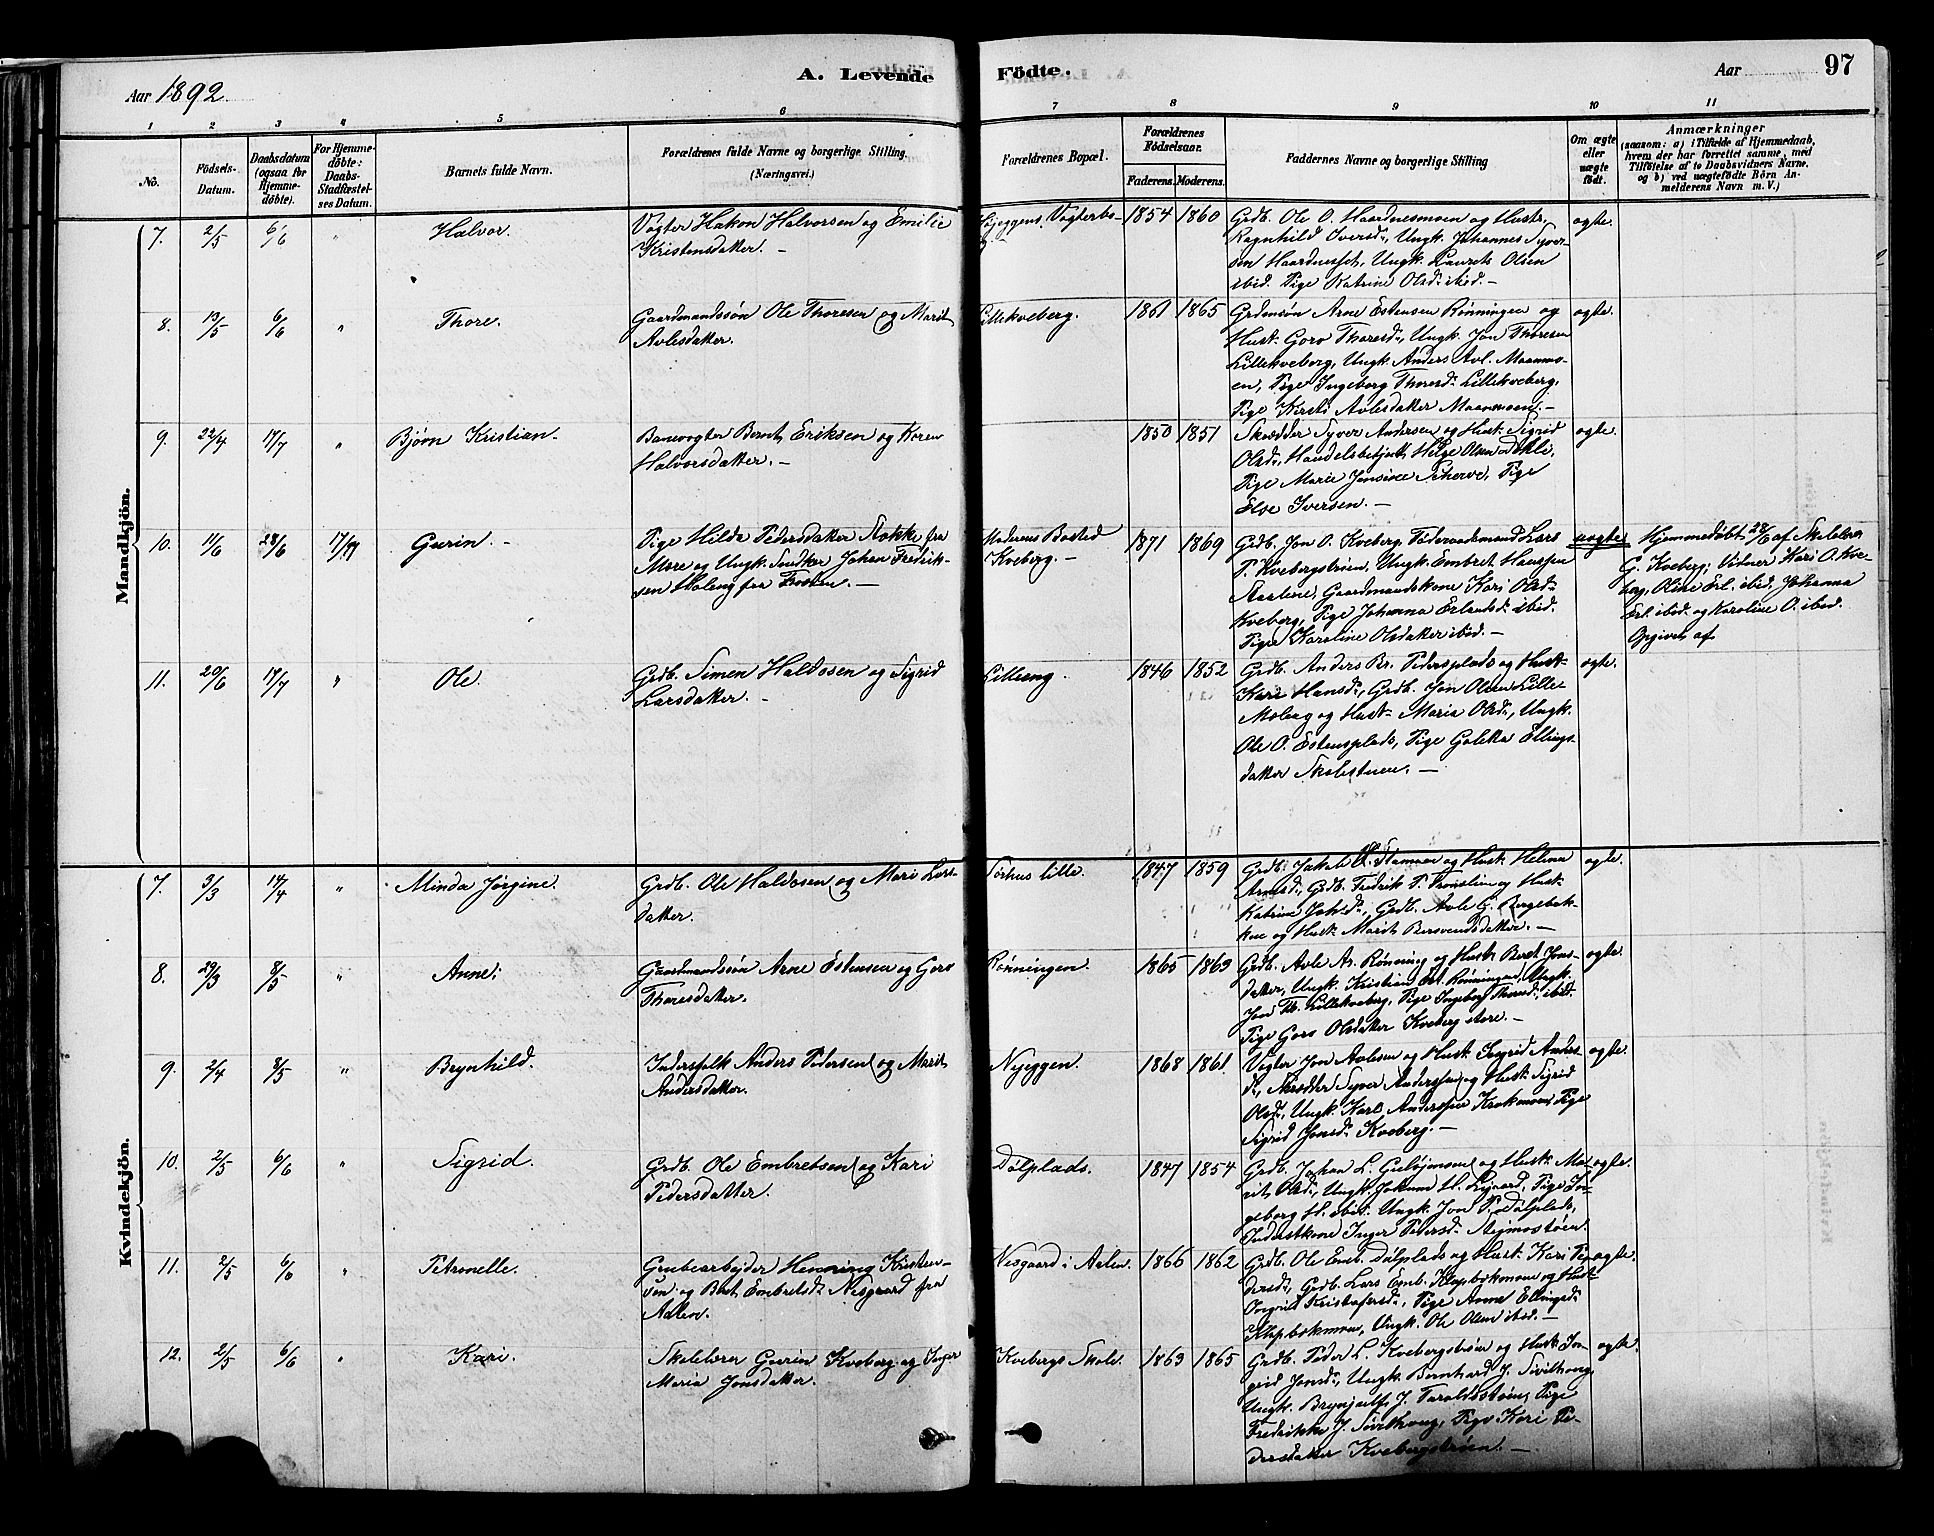 A. Levende Födte.
Aar 1892
Aar 97
1 2 3 4 5 6 7 8 9 10 11
No.
Födsels-
Datum.
Daabsdatum
(ogsaa for
Hjemme-
döbte).
For Hjemme-
döbte:
Daabs-
Stadfæstel-
ses Datum.
Barnets fulde Navn.
Forældrenes fulde Navne og borgerlige Stilling
(Næringsvei.)
Forældrenes Bopæl.
Forældrenes
Födselsaar.
Faderens. Moderens.
Faddernes Navne og borgerlige Stilling
Om ægte
eller
uægte
födt.
Anmærkninger
(saasom: a) i Tilfælde af Hjemmedaab,
hvem der har forrettet samme, med
Tilföielse af to Daabsvidners Navne,
og b) ved uægtefödte Börn An-
melderens Navn m. V.)
Mandkjön.
7. 2/5 6/6 " Halvor.
Vogter Hakon Halvorsen og Emilie
Kristensdatter. —
Vogterbo-
1854 1860
Grdb. Ole O. Haardnesmoen og Hust.
Ragnhild Iversd., Ungk. Johannes Syver-
sen Haardnesset, Ungk. Laurets Olsen
ibid. Pige Katrine Olsd. ibid. —
ægte.
8. 13/5 6/6 " Thore.
Gaardmandssön Ole Thoresen og Marit
Avlesdatter.
Lillekveberg.
1861 1865
Grdmsön Arne Estensen Rönningen og
Hust. Goro Thoresd., Ungk. Jon Thoresen
Lillekveberg, Ungk. Anders Avl. Maanmo-
en, Pige Ingeborg Thoresd. Lillekveberg,
Pige Kirsti Avlesdatter Maanmoen. —
ægte.
9. 22/4 17/7 " Björn Kristian.
Banevogter Bernt Eriksen og Karen
Halvorsdatter. —
1850 1851
Skrædder Syver Andersen og Hust. Sigrid
Olsd., Handelsbetjent Helge Olsen
Pige Marie Jonsine Scherve, Pige
Elve Iversen. —
ægte.
10. 11/6 28/6 17/7 Gurin. —
Pige Hilda Pedersdatter Stokke fra
Möre og Ungk. Snedker Johan Fredrik-
sen Holeng fra Trosten. —
Moderens Bosted
Kveberg. —
1871 1869
Grdb. Jon O. Kveberg, Föderaadsmand Lars
P. Kvebergströen, Ungk. Embret Hanssen
Aaslene, Gaardmandskone Kari Olsd.
Kveberg, Pige Johanna Erlandsd. ibid.
Pige Karoline Olsdatter ibid. —
uægte
Hjemmedöbt 28/6 af Skolelærer
G. Kveberg; Vidner Kari O. Kve-
berg, Oline Erl. ibid. Johanna
Erl. ibid. og Karoline O. ibid.
Opgivet af
11. 20/6 17/7 " Ole.
Grdb. Simen Haldosen og Sigrid
Larsdatter. —
Lilleeng.
1846 1852
Grdb. Anders Br. Pedersplads og Hust.
Kari Hansd., Grdb. Jon Olsen Lille-
Moberg og Hust. Maria Olsd., Ungk.
Ole O. Estensplads, Pige Goletta Ellings-
datter Skolestuen. —
ægte.
Kvindekjön.
7. 3/3 14/4 " Minda Jörgine.
Grdb. Ole Haldosen og Mari Lars-
datter.
Törhus lille.
1847 1859
Grdb. Jakob Stamoen og Hust. Helena
Arnesd., Grdb. Fredrik P. Tronslien og Hust.
Katrine Johsd., Grdb. Avle G. Bergebak-
ken og Hust. Marit Bersvendsdatter. —
ægte.
8. 29/3 8/5 " Anne.
Gaardmandssön Arne Estensen og Goro
Thoresdatter.
Rönningen.
1865 1863
Grdb. Avle Ar. Rönning og Hust. Beret Jons-
datter, Ungk. Kristian Est. Rönningen, Ungk.
Jon Th. Lillekveberg, Pige Ingeborg Thoresd. ibid.
Pige Goro Olsdatter Kveberg store. —
ægte.
9. 2/4 8/5 " Brynhild.
Inderstfolk Anders Pedersen og Marit
Andersdatter.
Nyeggen.
1868 1861.
Vogter Jon Avlesen og Hust. Ingrid Anders-
d., Skrædder Syver Andersen og Hust. Sigrid
Olsd., Ungk. Karl Anderssen Krokmoen, Pige
Sigrid Jonsd. Kveberg. —
ægte.
10. 2/5 6/6 " Sigrid.
Grdb. Ole Embretsen og Kari
Pedersdatter.
Dölplads.
1847 1854
Grdb. Johan L. og Hust. Ma-
rit Olsd., Ungk. Jokum H. Ligaard, Pige In-
geborg H. ibid. Ungk. Jon P. Dölplads,
Inderstkone Inger Pedersd.
ægte.
11. 2/5 6/6 " Petronelle.
Grubearbejder Henning Kristen-
sen og Beret Embretsd. Nesgaard fra
Aalen.
Nesgaard i Aalen.
1866 1862
Grdb. Ole Emb. Dölplads og Hust. Kari Pe-
dersd., Grdb. Lars Emb. Klapbækmoen og Hust.
Ingrid Kristofersd., Pige Anne Ellingsd.
Klapbækmoen, Ungk. Ole Olsen ibid. —
ægte.
12. 2/5 6/6 " Kari.
Skolelærer Guerin Kveberg og Inger
Maria Jonsdatter.
Kvebergs Skole.
1863 1865
Grdb. Peder L. Kvebergströen og Hust. In-
grid Jonsd., Ungk. Bernhard J. Sivilhaug,
Ungk. Brynjulf J. Taraldsstöen, Pige
Fredrikke J. Sivilhaug, Pige Kari Pe-
dersdatter Kvebergströen. —
ægte